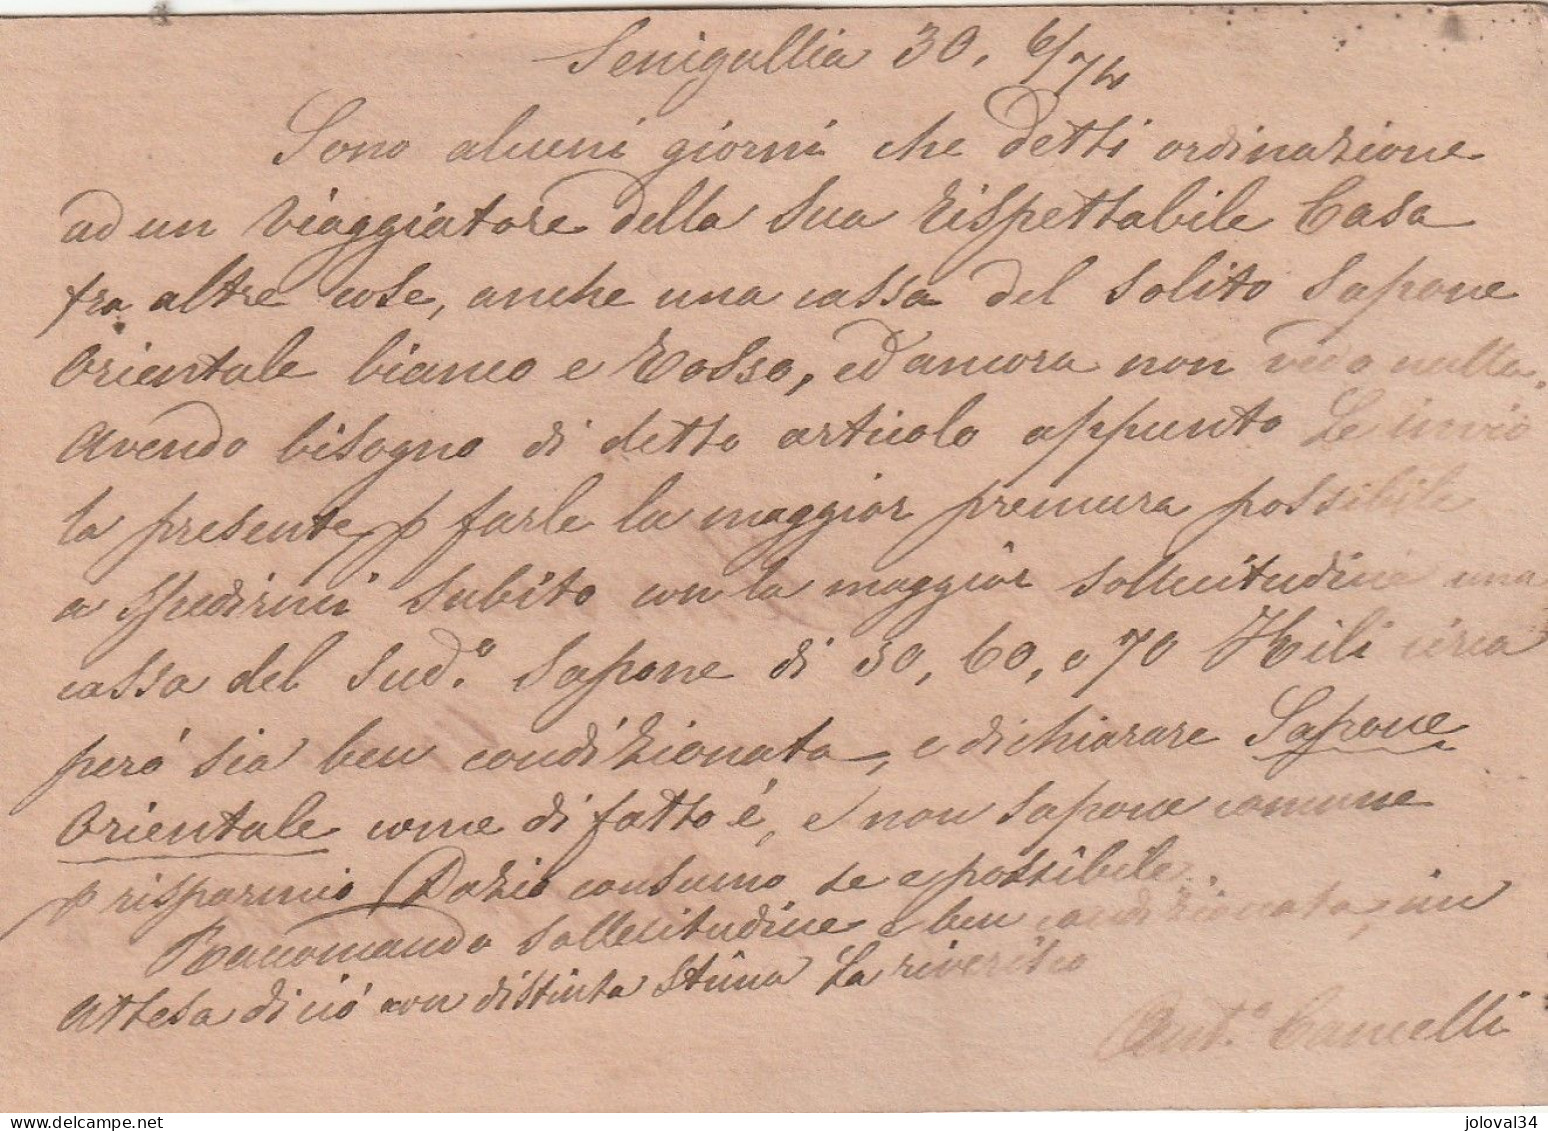 Senigallia 30. 6/74
Sono alcuni giorni che detti ordinazione
ad un Viaggiatore della Sua Rispettabile Casa
fra altre cose, anche una cassa del Solito Sapone
Orientale bianco e Rosso, ed ancora non vedo nulla.
Avendo bisogno di detto articolo appunto Le invio
la presente p farle la maggior premura possibile
a spedirmi subito con la maggior sollecitudine una
cassa del Sud.º Sapone di 50, 60, o 70 Kili circa
però sia ben condizionata, e dichiarare Sapone
Orientale come di fatto é, e non Sapone comune
p risparmio Dazio consumo se e possibile.
Raccomando sollecitudine e ben condizionata, in
attesa di ciò con distinta stima La riverisco
Ant.º
delcampe.net
joloval34